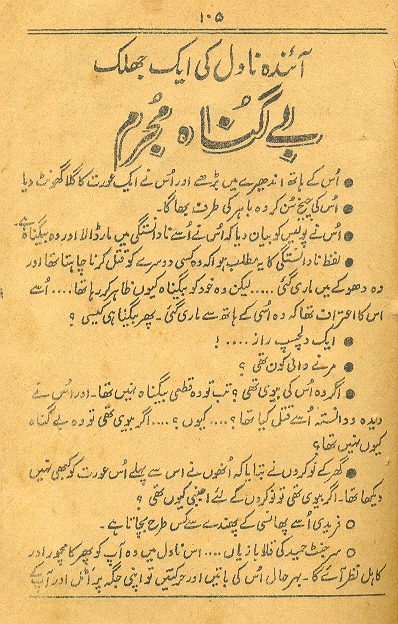 ۱۰۵
آئندہ ناول کی ایک جھلک
بے گناہ مجرم
● اُس کے ہاتھ اندھیرے میں بڑھے اور اُس نے ایک عورت کا گلا گھونٹ دیا
● اُس کی چیخ سُن کر وہ باہر کی طرف بھاگا۔
● اُس نے پولیس کو بیان دیا کہ اُس نے اُسے نادانستگی میں مار ڈالا اور وہ بیگناہ ہے۔
● لفظ نادانستگی کا یہ مطلب ہوا کہ وہ کسی دوسرے کو قتل کرنا چاہتا تھا اور
وہ دھوکے میں ماری گئی ..... لیکن وہ خود کو بیگناہ کیوں ظاہر کر رہا تھا .... اُسے
اس کا اعتراف تھا کہ وہ اُسی کے ہاتھ سے ماری گئی۔ پھر بیگناہی کیسی ؟
● ایک دلچسپ راز .... !
● مرنے والی کون تھی ؟
● اگر وہ اُس کی بیوی تھی ؟ تب تو وہ قطعی بیگناہ نہیں تھا۔ اور اُس نے
دیدہ و دانستہ اُسے قتل کیا تھا ؟ .... کیوں ؟ .... اگر بیوی تھی تو وہ بے گناہ
کیوں نہیں تھا ؟
● گھر کے نوکروں نے بتایا کہ اُنھوں نے اس سے پہلے اُس عورت کو کبھی نہیں
دیکھا تھا۔ اگر بیوی تھی تو نوکروں کے لئے اجنبی کیوں تھی ؟
○ فریدی اسے پھانسی کے پھندے سے کس طرح بچاتا ہے۔
○ سرجنٹ حمید کی قلابازیاں .... اس ناول میں وہ آپ کو پھر کامچور اور
کاہل نظر آئے گا۔ بہرحال اُس کی باتیں اور حرکتیں تو اپنی جگہ پر اٹل اور آپ کے